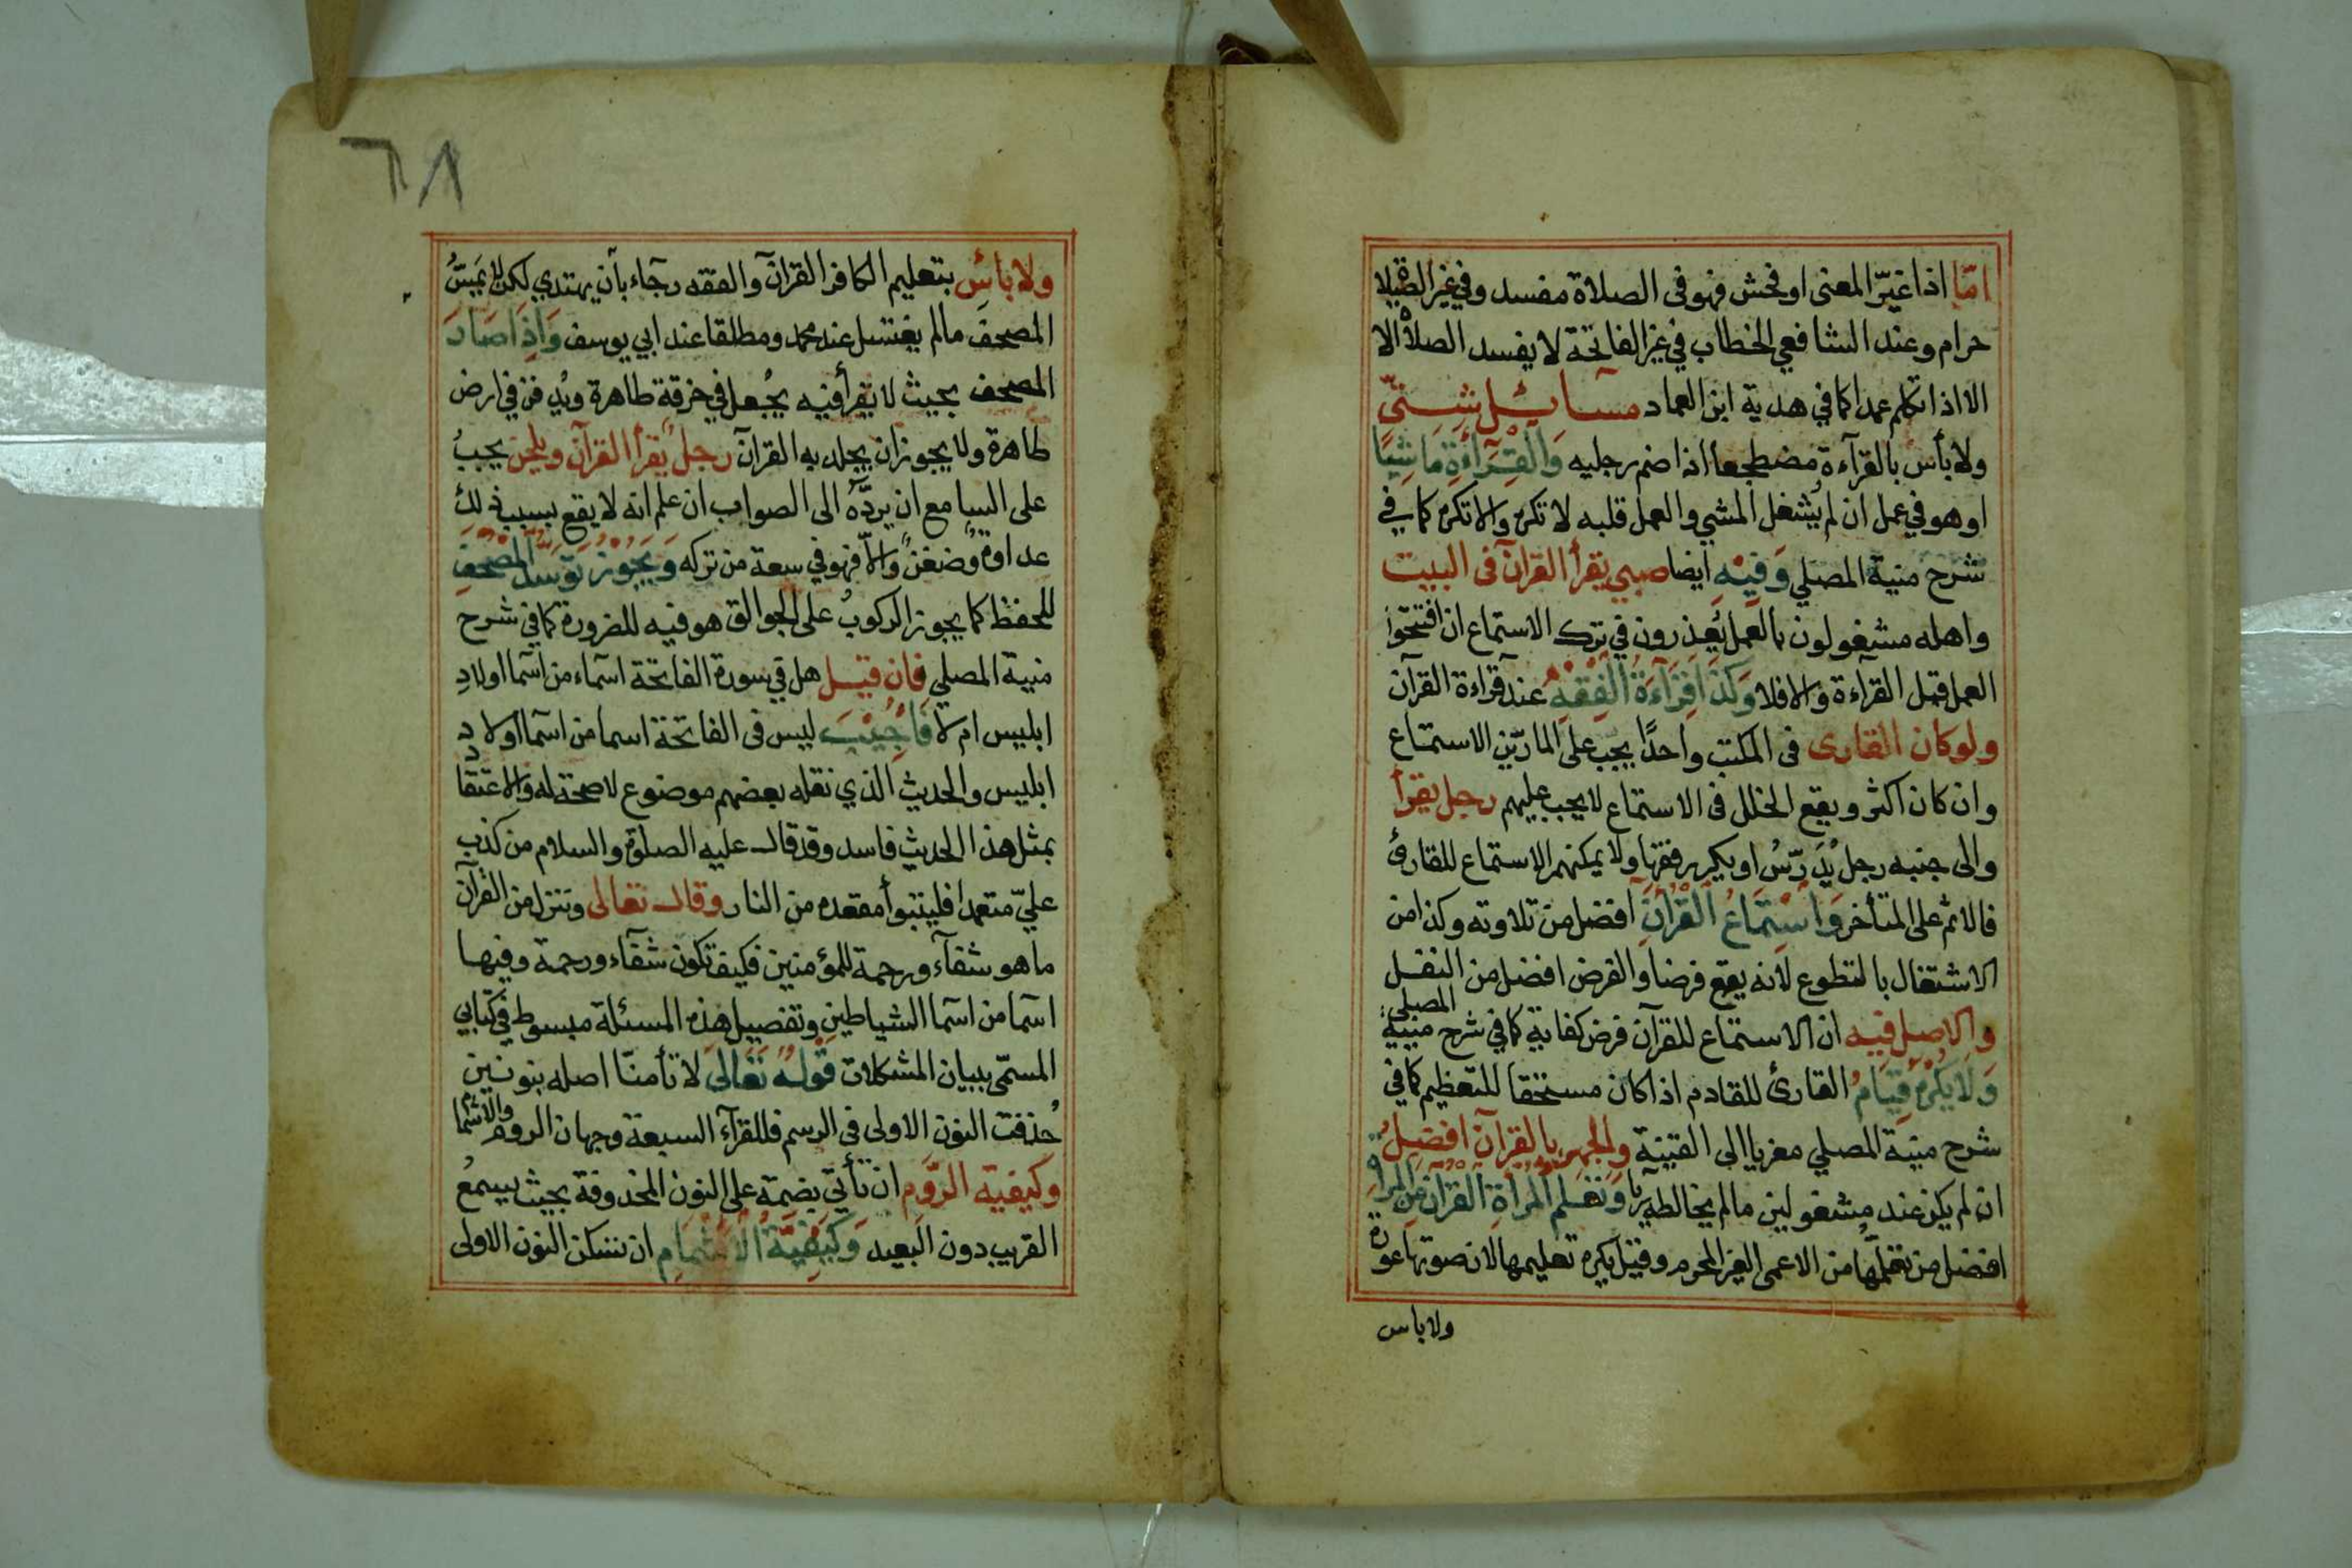 امّا اذا غيّر المعنى او فحش فهو في الصلاة مفسد وفي غير الصلاة
حرام وعند الشافعي الخطاب في غير الفاتحة لا يفسد الصلاة الا
الا اذا تكلم عمدا كما في هدية ابن العماد مسائل شتّى
ولا بأس بالقرآءة مضطجعا اذا ضم رجليه وَالقِرَاءَةِ مَاشِيًا
او هو في عمل ان لم يُشغل المشي والعمل قلبه لا تكره والا تكره كما في
شرح منية المصلي وَفِيْهِ ايضا صبي يقرأ القرآن فى البيت
واهله مشغولون بالعمل يُعذرون في ترك الاستماع ان افتتحوا
العمل قبل القرآءة والا فلا وَكَذَا قِرَآءَةُ الْفِقْهِ عند قرآءة القرآن
ولو كان القارى فى المكتب واحدًا يجب على المارّين الاستماع
وان كان اكثر ويقع الخلل فى الاستماع لا يجب عليهم رجل يقرأ
والى جنبه رجل يُدَرّسُ او يكرر فقها ولا يمكنهم الاستماع للقارئ
فالاثم على المتأخر وَاسْتِمَاعُ الْقُرْآنِ افضل من تلاوته وكذا من
الاشتغال بالتطوع لانه يقع فرضا والفرض افضل من النفل
والاصل فيه ان الاستماع للقرآن فرض كفاية كما في شرح منية المصلي
وَلَا يُكْرَهُ قِيَامُ القارئ للقادم اذا كان مستحقا للتعظيم كما في
شرح منية المصلي مغريا الى القنية والجهر بالقرآن افضل
ان لم يكن عند مشغولين مالم يخالطه ريا وَتَعَلُّمُ الْمَرْأَةِ القُرْآنَ مِنَ المرأة
افضل من تعلّمها من الاعمى الغير المحرم وقيل يكره تعليمها لان صوتها عورة
ولا باس
٦٨
ولا بأس بتعليم الكافر القرآن والفقه رجآء بأن يهتدي لكن لا يَمَسُّ
المصحف مالم يغتسل عند محمد ومطلقا عند ابي يوسف وَاِذَا صَارَ
المصحف بحيث لا يقرأ فيه يجُعل في خرقة طاهرة ويُدفن في ارض
طاهرة ولا يجوز ان يجلد به القرآن رجل يقرأ القرآن ويلحن يجبُ
على السامع ان يردّه الى الصواب ان علم انه لا يقع بسبب ذلك
عداوة وضغن والّا فهو في سعة من تركه وَيَجُوْزُ تَوَسُّدُ الْمُصْحَفِ
للحفظ كما يجوز الركوب على الجوالق هو فيه للضرورة كما في شرح
منية المصلي فان قيل هل في سورة الفاتحة اسماء من اسما اولاد
ابليس ام لا فَاُجِيْبَ ليس فى الفاتحة اسما من اسما اولاد
ابليس والحديث الذي نقله بعضهم موضوع لا صحة له والاعتقاد
بمثل هذا الحديث فاسد وقد قال عليه الصلوة والسلام من كذب
عليّ متعمدا فليتبوأ مقعده من النار وقال تعالى وننزل من القرآن
ما هو شفآء ورحمة للمؤمنين فكيف تكون شفآء ورحمة وفيها
اسما من اسما الشياطين وتفصيل هذه المسئلة مبسوط في كتابي
المسمّى ببيان المشكلات قَوْلُهُ تَعَالَى لا تأمنّا اصله بنونين
حُذفت النون الاولى فى الرسم فللقرآء السبعة وجهان الروم والاشمام
وكيفية الرَّوم ان تأتي بضمة على النون المحذوفة بحيث يسمعُ
القريب دون البعيد وَكَيْفِيَّةُ الْاِشْمَامِ ان تسكن النون الاولى